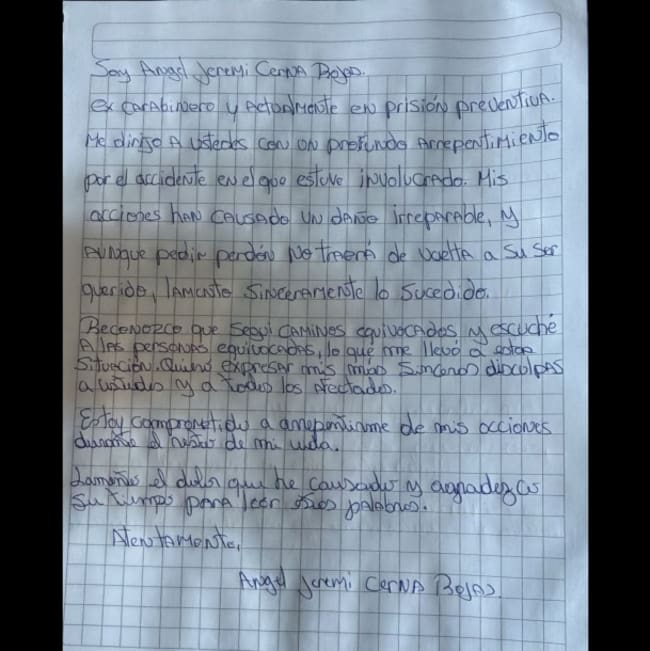 Soy Angel Jeremi Cerna Bojas.
ex carabinero y actualmente en prisión preventiva.
Me dirijo a ustedes con un profundo arrepentimiento
por el accidente en el que estuve involucrado. Mis
acciones han causado un daño irreparable, y
aunque pedir perdón no traerá de vuelta a su ser
querido, lamento sinceramente lo sucedido.
Reconozco que segui caminos equivocados y escuché
a las personas equivocadas, lo que me llevó a estas
situación. Quiero expresar mis más sinceras disculpas
a ustedes y a todos los afectados.
Estoy comprometido a arrepentirme de mis acciones
durante el resto de mi vida.
Lamento el dolor que he causado y agradezco
su tiempo para leer estas palabras.
Atentamente,
Angel Jeremi Cerna Bojas.